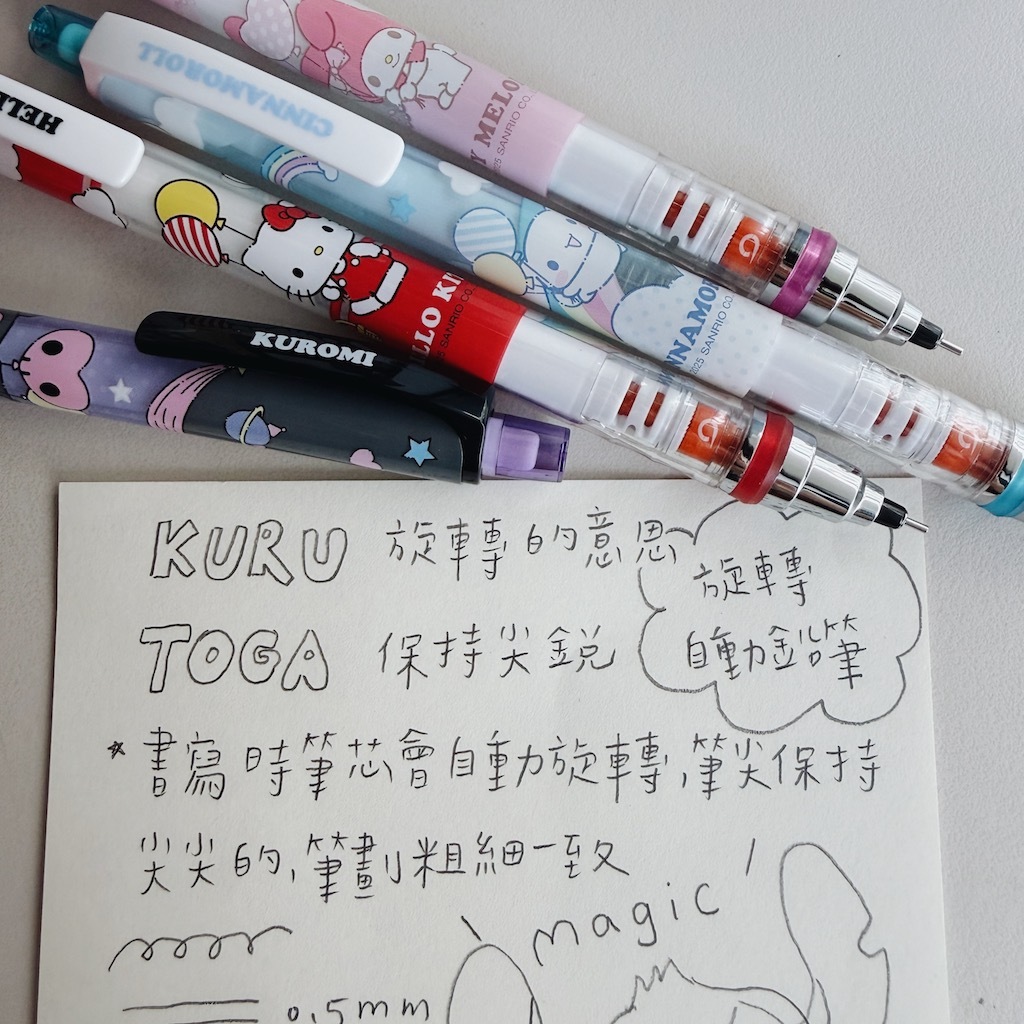 CINNAMOROLL
Y MELO
2025 SANRIO CO.
HELL
LLO KIT
2025 SANRIO CO.
INNAMOR
2025 SANRIO CO.
KUROMI
KURU 旋轉的意思
旋轉
自動鉛筆
TOGA 保持尖銳
*書寫時筆芯會自動旋轉,筆尖保持
尖尖的,筆劃粗細一致
magic
0.5mm